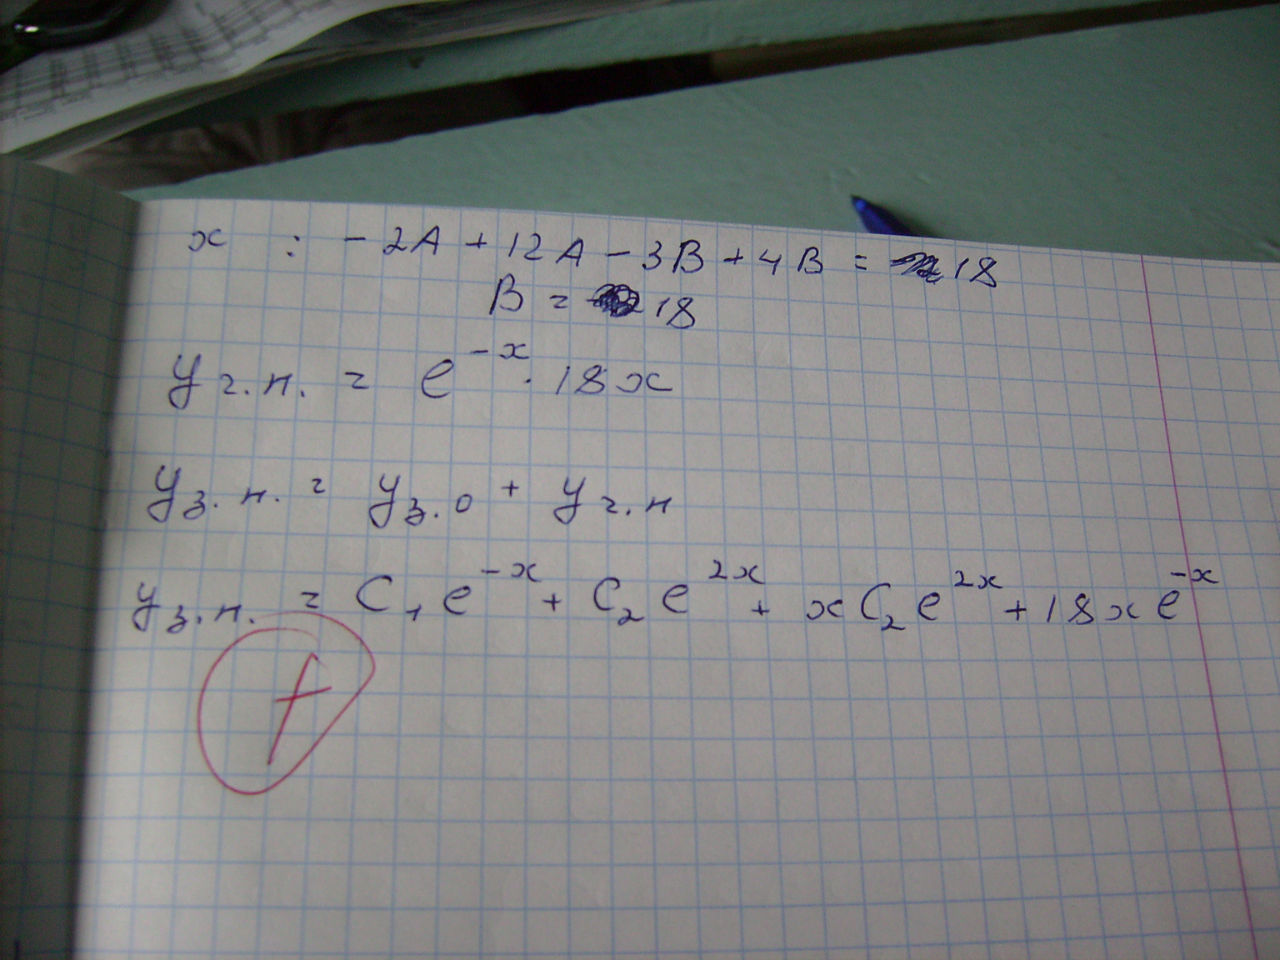 x : - 2A + 12A - 3B + 4B = 18
B = 18
yч.н. = e^{-x} · 18x
yз.н. = yз.о + yч.н
yз.н. = C₁e^{-x} + C₂e^{2x} + xC₂e^{2x} + 18xe^{-x}
+